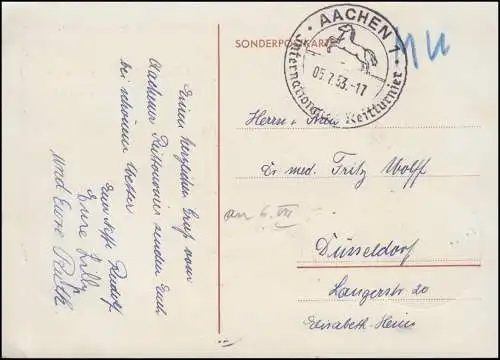 SONDERPOSTKARTE
AACHEN 1
05.7.53.-17
Internationales Reitturnier
Einen herzlichen Gruß vom
Aachener Reitturnier senden Euch
bei schönem Wetter
Euer Rudolf
Eure Lilly
und Eure Ruth.
Herrn u. Frau
Dr med. Fritz Wolff
am 6. VII
Düsseldorf
Langerstr 20
Elisabeth-Heim